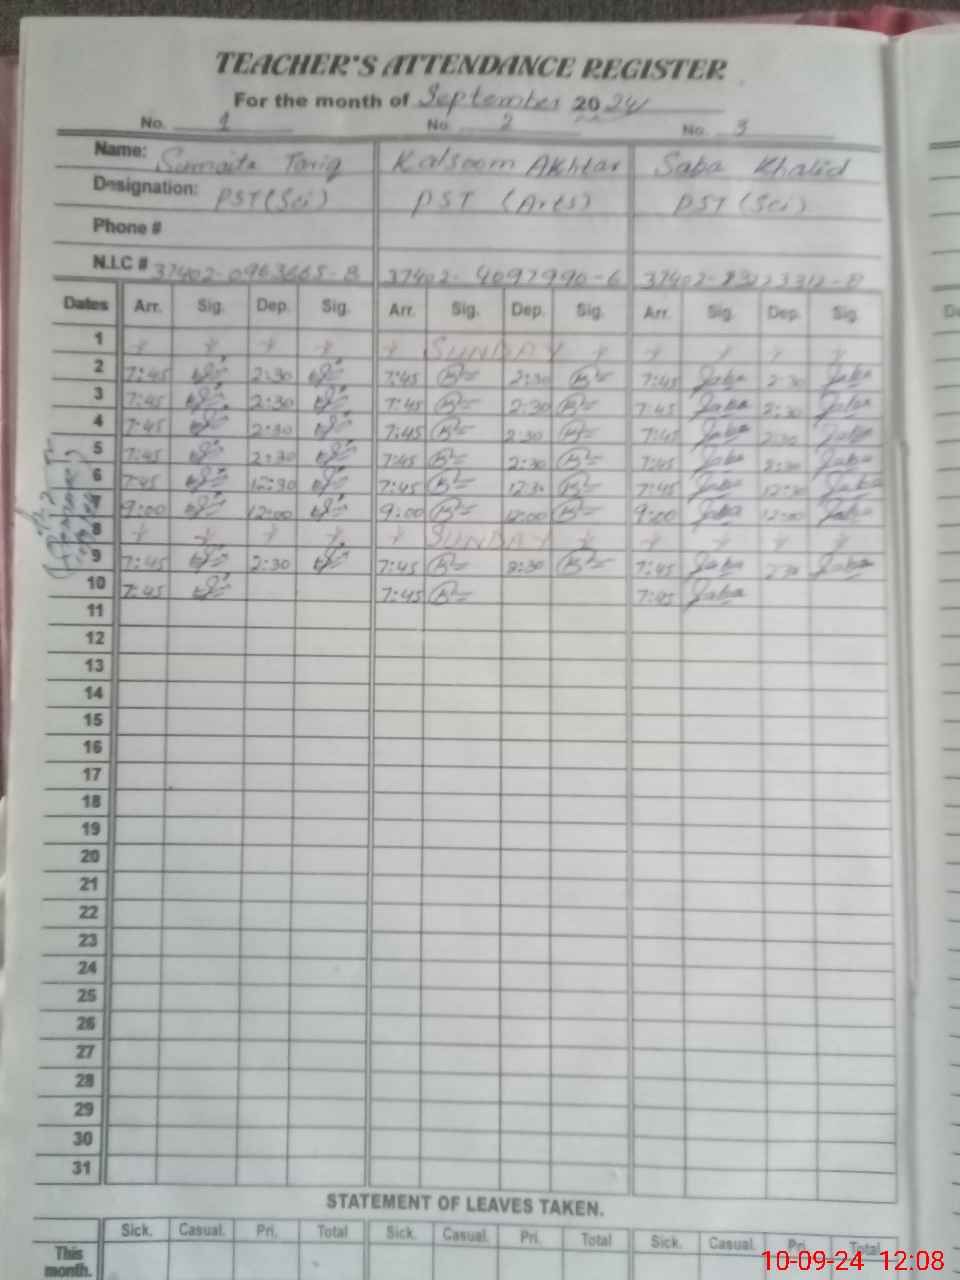 TEACHER'S ATTENDANCE REGISTER
For the month of September 2024
No. 1 No. 2 No. 3
Name: Sumaita Tariq Kalsoom Akhtar Saba Khalid
Designation: PST (Sci) PST (Arts) PST (Sci)
Phone #
N.I.C # 37402-0963665-8 37402-4097990-6 37402-
Dates Arr. Sig. Dep. Sig. Arr. Sig. Dep. Sig. Arr. Sig. Dep. Sig.
1 SUNDAY
2 7:45 2:30 7:45 2:30 7:45 Saba 2:30 Saba
3 7:45 2:30 7:45 2:30 7:45 Saba 2:30 Saba
4 7:45 2:30 7:45 2:30 7:45 Saba 2:30 Saba
5 7:45 2:30 7:45 2:30 7:45 Saba 2:30 Saba
6 7:45 12:30 7:45 12:30 7:45 Saba 12:30 Saba
7 9:00 12:00 9:00 12:00 9:00 Saba 12:00 Saba
8 SUNDAY
9 7:45 2:30 7:45 2:30 7:45 Saba 2:30 Saba
10 7:45 7:45 7:45 Saba
11
12
13
14
15
16
17
18
19
20
21
22
23
24
25
26
27
28
29
30
31
STATEMENT OF LEAVES TAKEN.
Sick. Casual. Pri. Total Sick. Casual. Pri. Total Sick. Casual. Pri. Total
This
month.
10-09-24 12:08